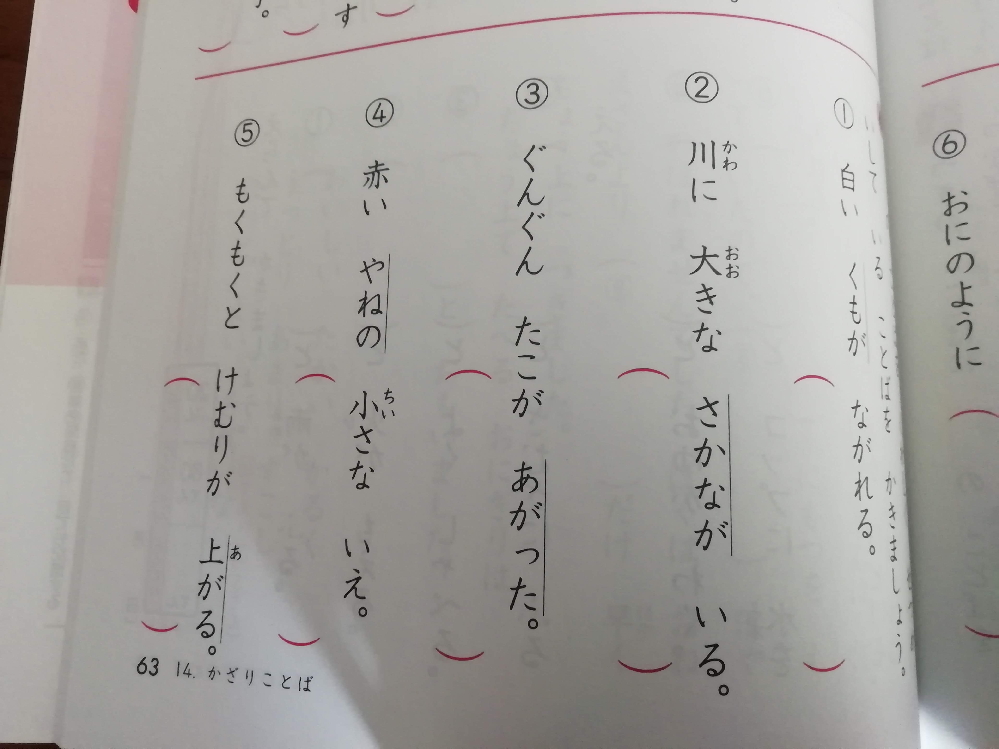 ⑥ おにのように
いして いる ことばを かきましょう。
① 白い くもが ながれる。
② 川に 大きな さかなが いる。
かわ
おお
③ ぐんぐん たこが あがった。
④ 赤い やねの 小さな いえ。
ちい
⑤ もくもくと けむりが 上がる。
あ
す
63 14. かざりことば